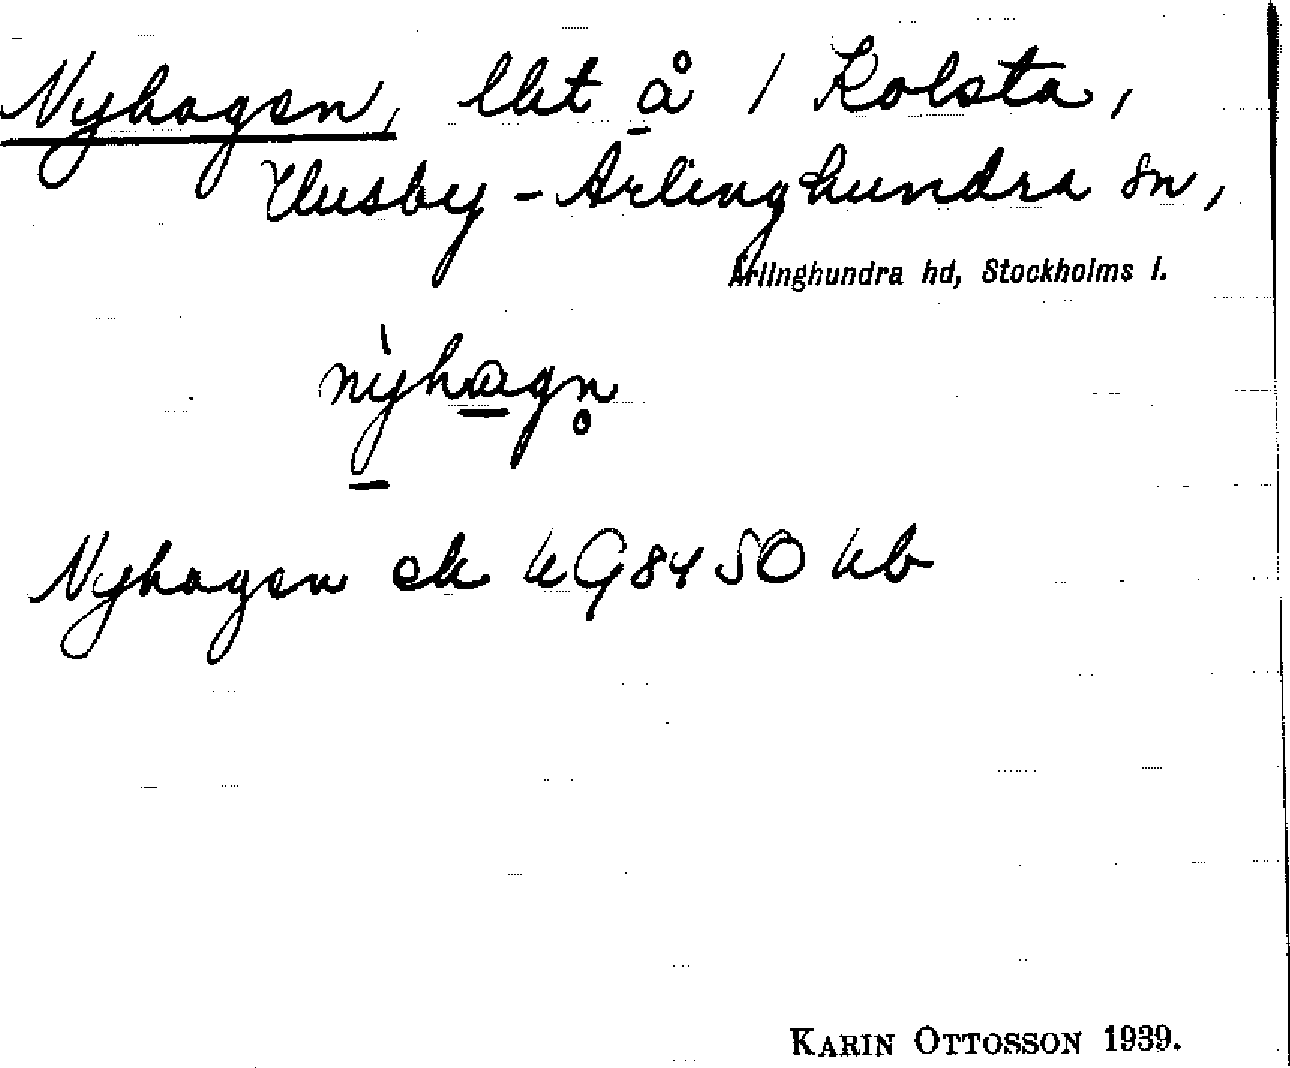 Nyhagen, lht å / Kolsta,
Husby-Ärlinghundra sn,
Ärlinghundra hd, Stockholms l.
nỳhagn̥
Nyhagen ek 98450 kb
KARIN OTTOSSON 1939.